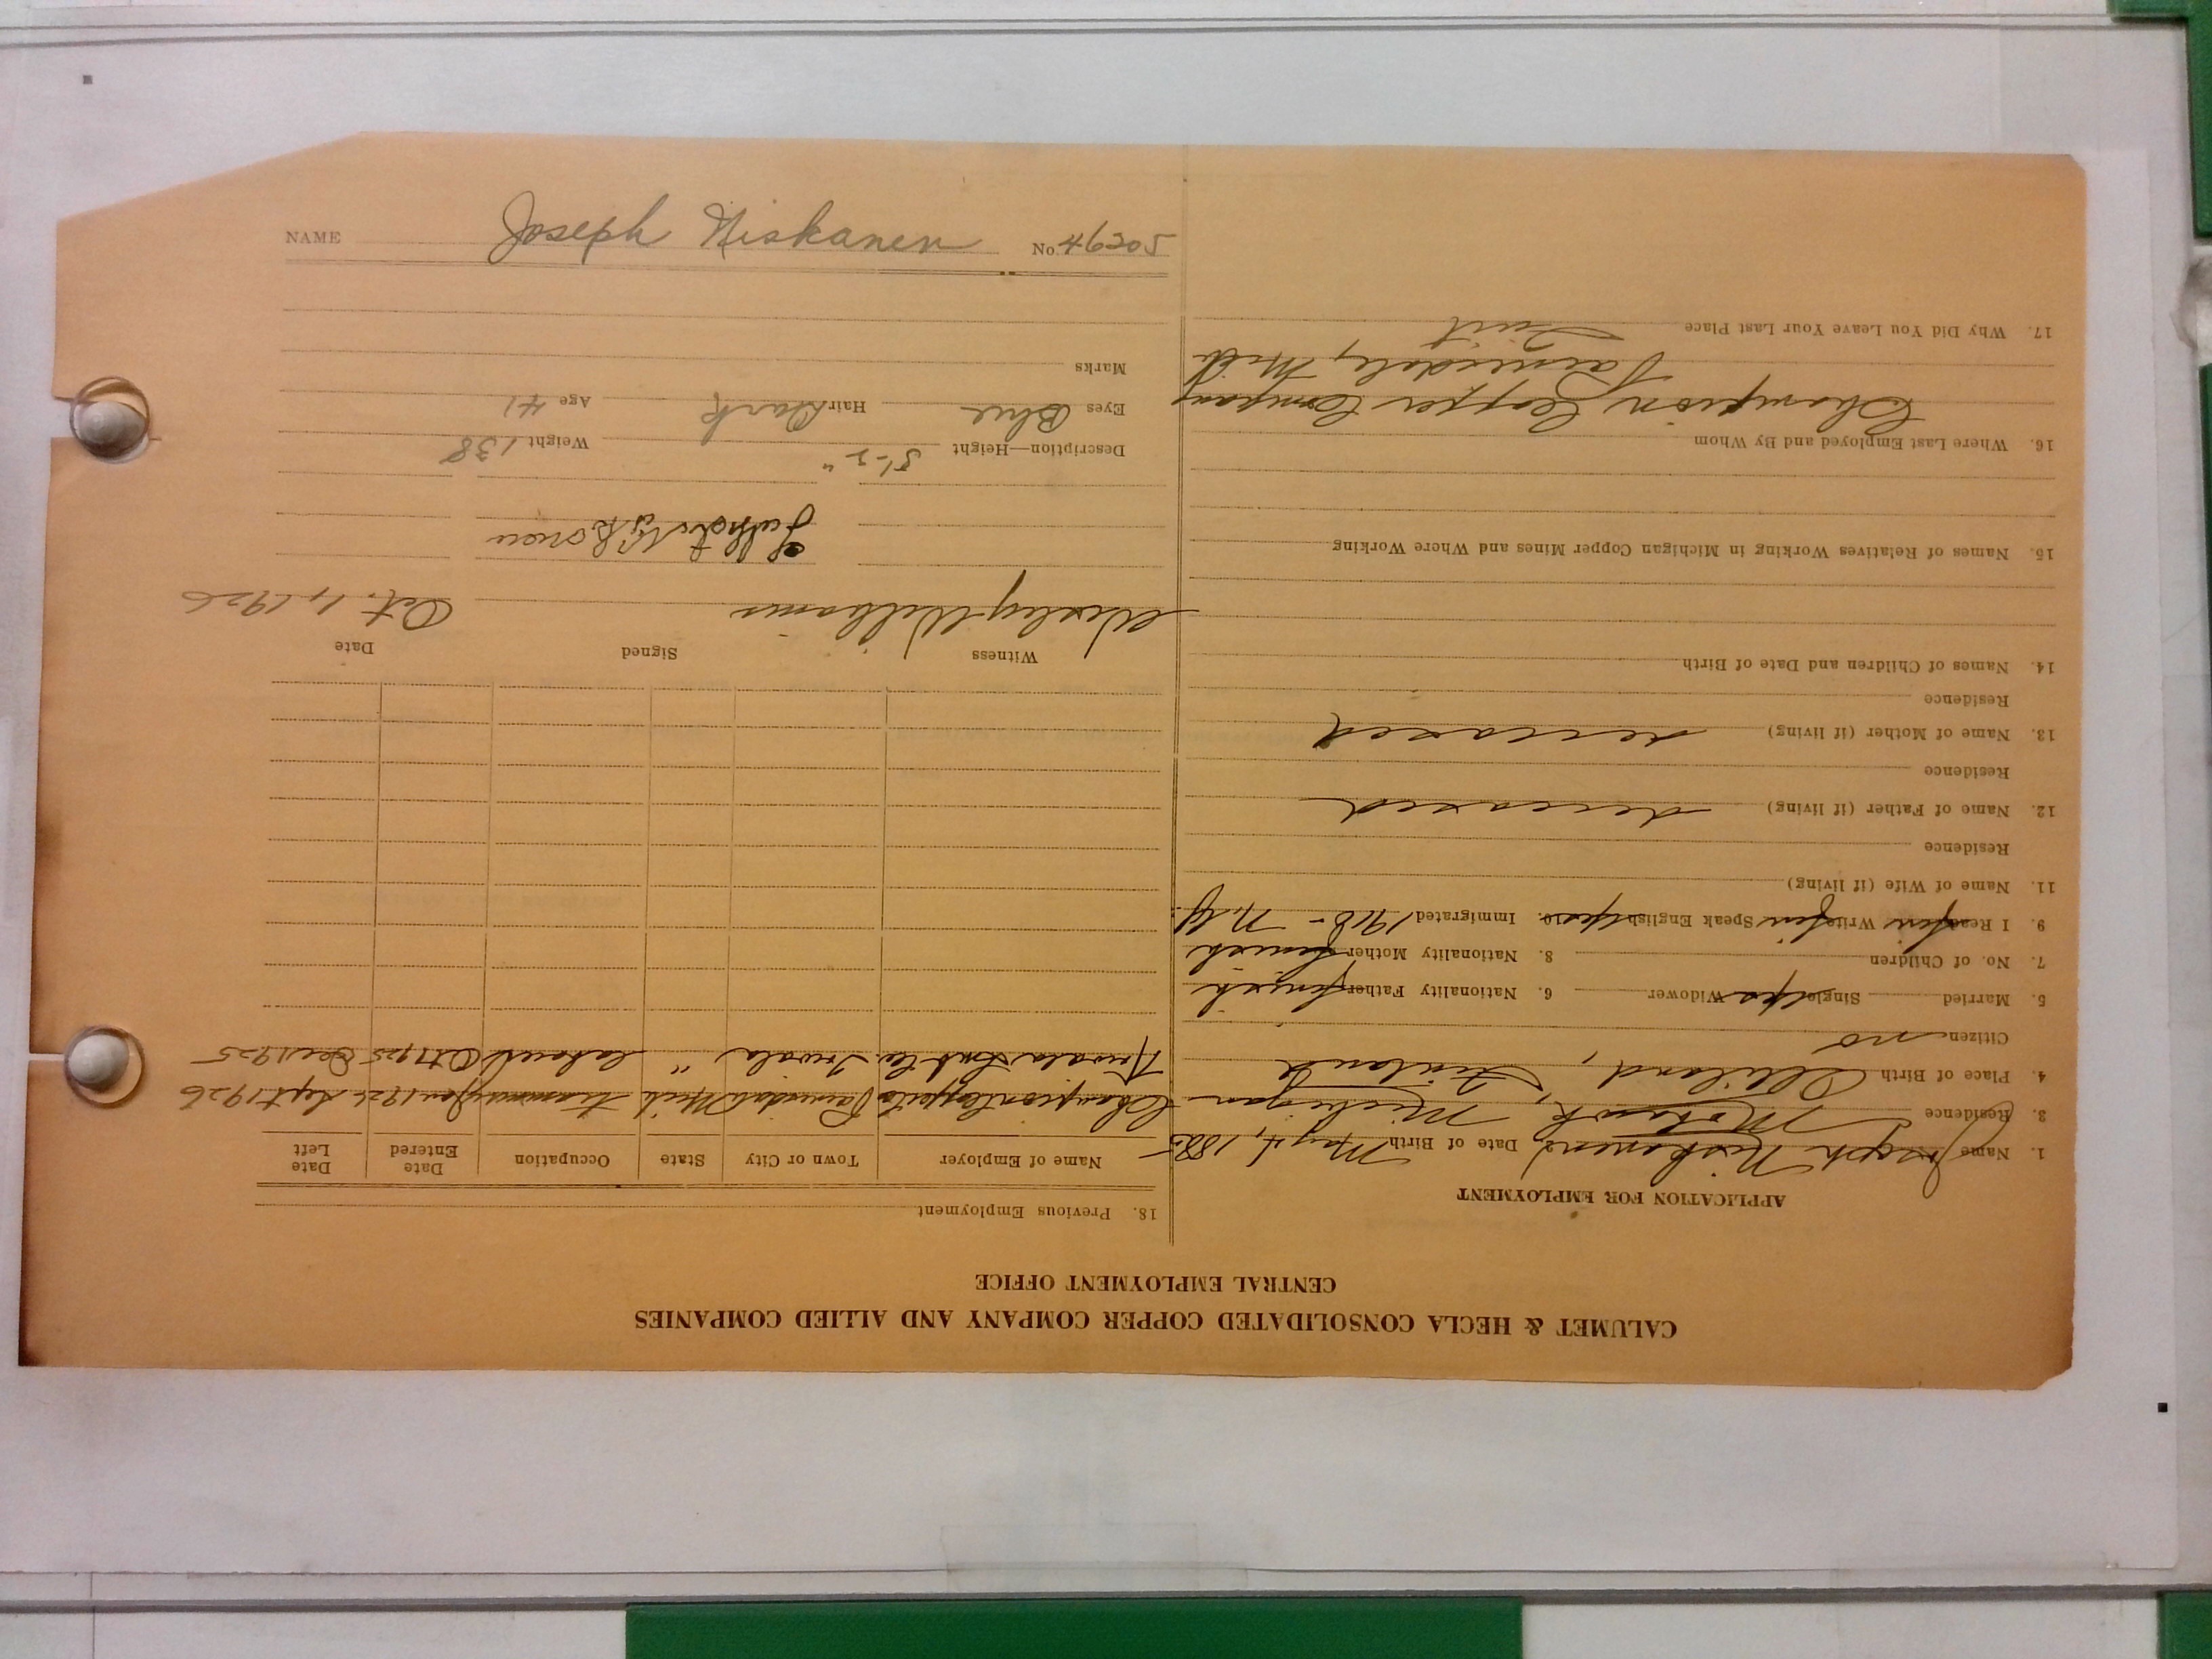 CALUMET & HECLA CONSOLIDATED COPPER COMPANY AND ALLIED COMPANIES
CENTRAL EMPLOYMENT OFFICE
APPLICATION FOR EMPLOYMENT
1. Name Joseph Niskanen 2. Date of Birth May 4, 1885
3. Residence Mohawk, Michigan
4. Place of Birth Finland
Citizen no
5. Married Single yes Widower 6. Nationality Father Finnish
7. No. of Children 8. Nationality Mother Finnish
9. I Read Finn Write Finn Speak English yes 10. Immigrated 1910 - N.Y.
11. Name of Wife (if living)
Residence
12. Name of Father (if living) deceased
Residence
13. Name of Mother (if living) deceased
Residence
14. Names of Children and Date of Birth
15. Names of Relatives Working in Michigan Copper Mines and Where Working
16. Where Last Employed and By Whom
Champion Copper Company
Painesdale, Mich
17. Why Did You Leave Your Last Place Quit
18. Previous Employment
Name of Employer Town or City State Occupation Date Entered Date Left
Champion Copper Co Painesdale Mich trammer Jan 1926 Sept 1926
Toivola " laborer Oct 1925 Dec 1925
Witness Signed Date
Wesley Williams Oct. 1, 1926
Description—Height 5'-5" Weight 138
Eyes Blue Hair Dark Age 41
Marks
NAME Joseph Niskanen No. 46205